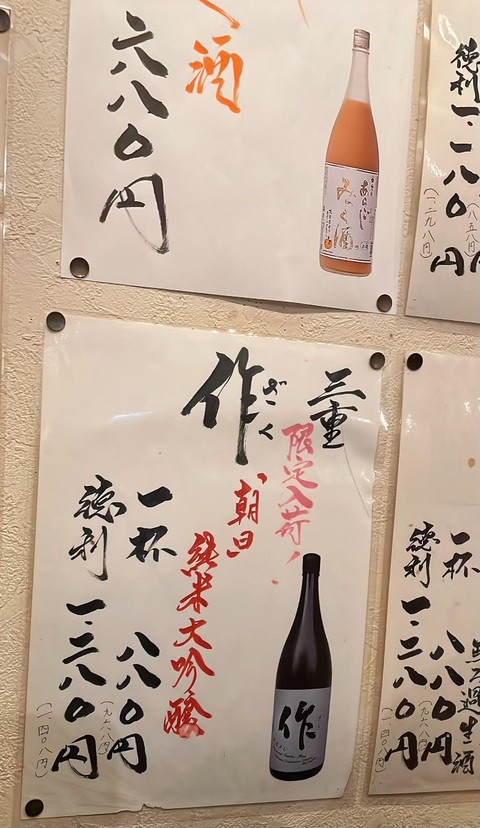 酒
六八〇円
あらごし
みかん酒
徳利 一.一八〇円
(一二九八円)
(八五八円)
三重
作 ざく
限定入荷!
朝日
純米大吟醸
一杯 八八〇円
(九六八円)
徳利 一.二八〇円
(一.四〇八円)
作
無濾過生酒
一杯 八八〇円
(九六八円)
徳利 一.二八〇円